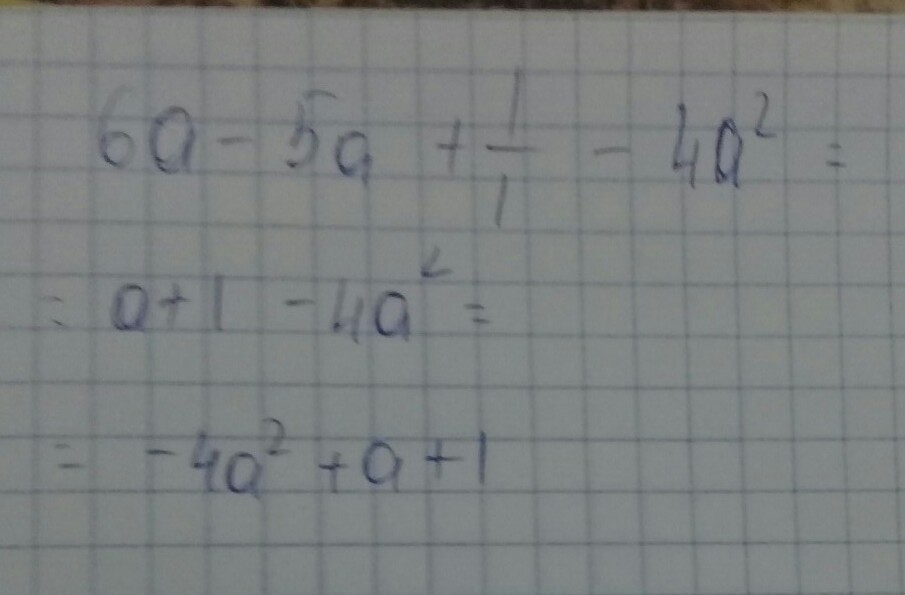 6a - 5a + 1/1 - 4a² =
= a + 1 - 4a² =
= -4a² + a + 1